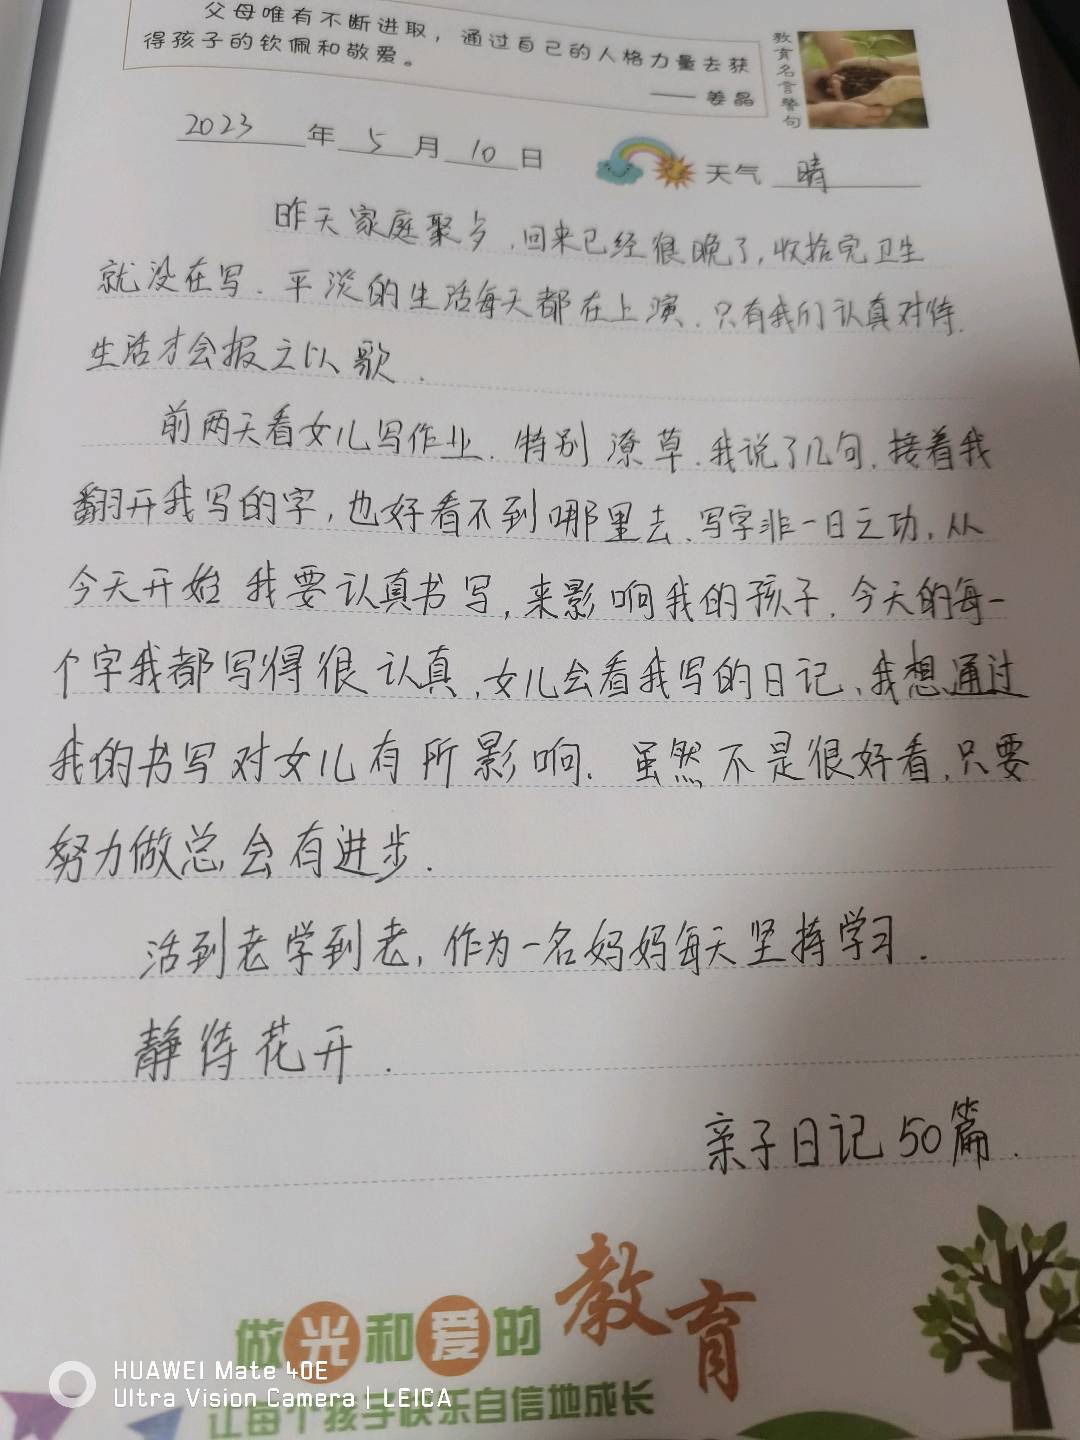 父母唯有不断进取，通过自己的人格力量去获
得孩子的钦佩和敬爱。
—— 姜晶
教育名言警句
2023年5月10日 天气 晴
昨天家庭聚多,回来已经很晚了,收拾完卫生
就没在写.平淡的生活每天都在上演.只有我们认真对待.
生活才会报之以歌.
前两天看女儿写作业.特别潦草.我说了几句,接着我
翻开我写的字,也好看不到哪里去.写字非一日之功,从
今天开始我要认真书写,来影响我的孩子.今天的每一
个字我都写得很认真,女儿会看我写的日记、我想通过
我的书写对女儿有所影响.虽然不是很好看,只要
努力做总会有进步.
活到老学到老,作为一名妈妈每天坚持学习.
静待花开.
亲子日记50篇.
做光和爱的教育
让每个孩子快乐自信地成长
HUAWEI Mate 40E
Ultra Vision Camera | LEICA